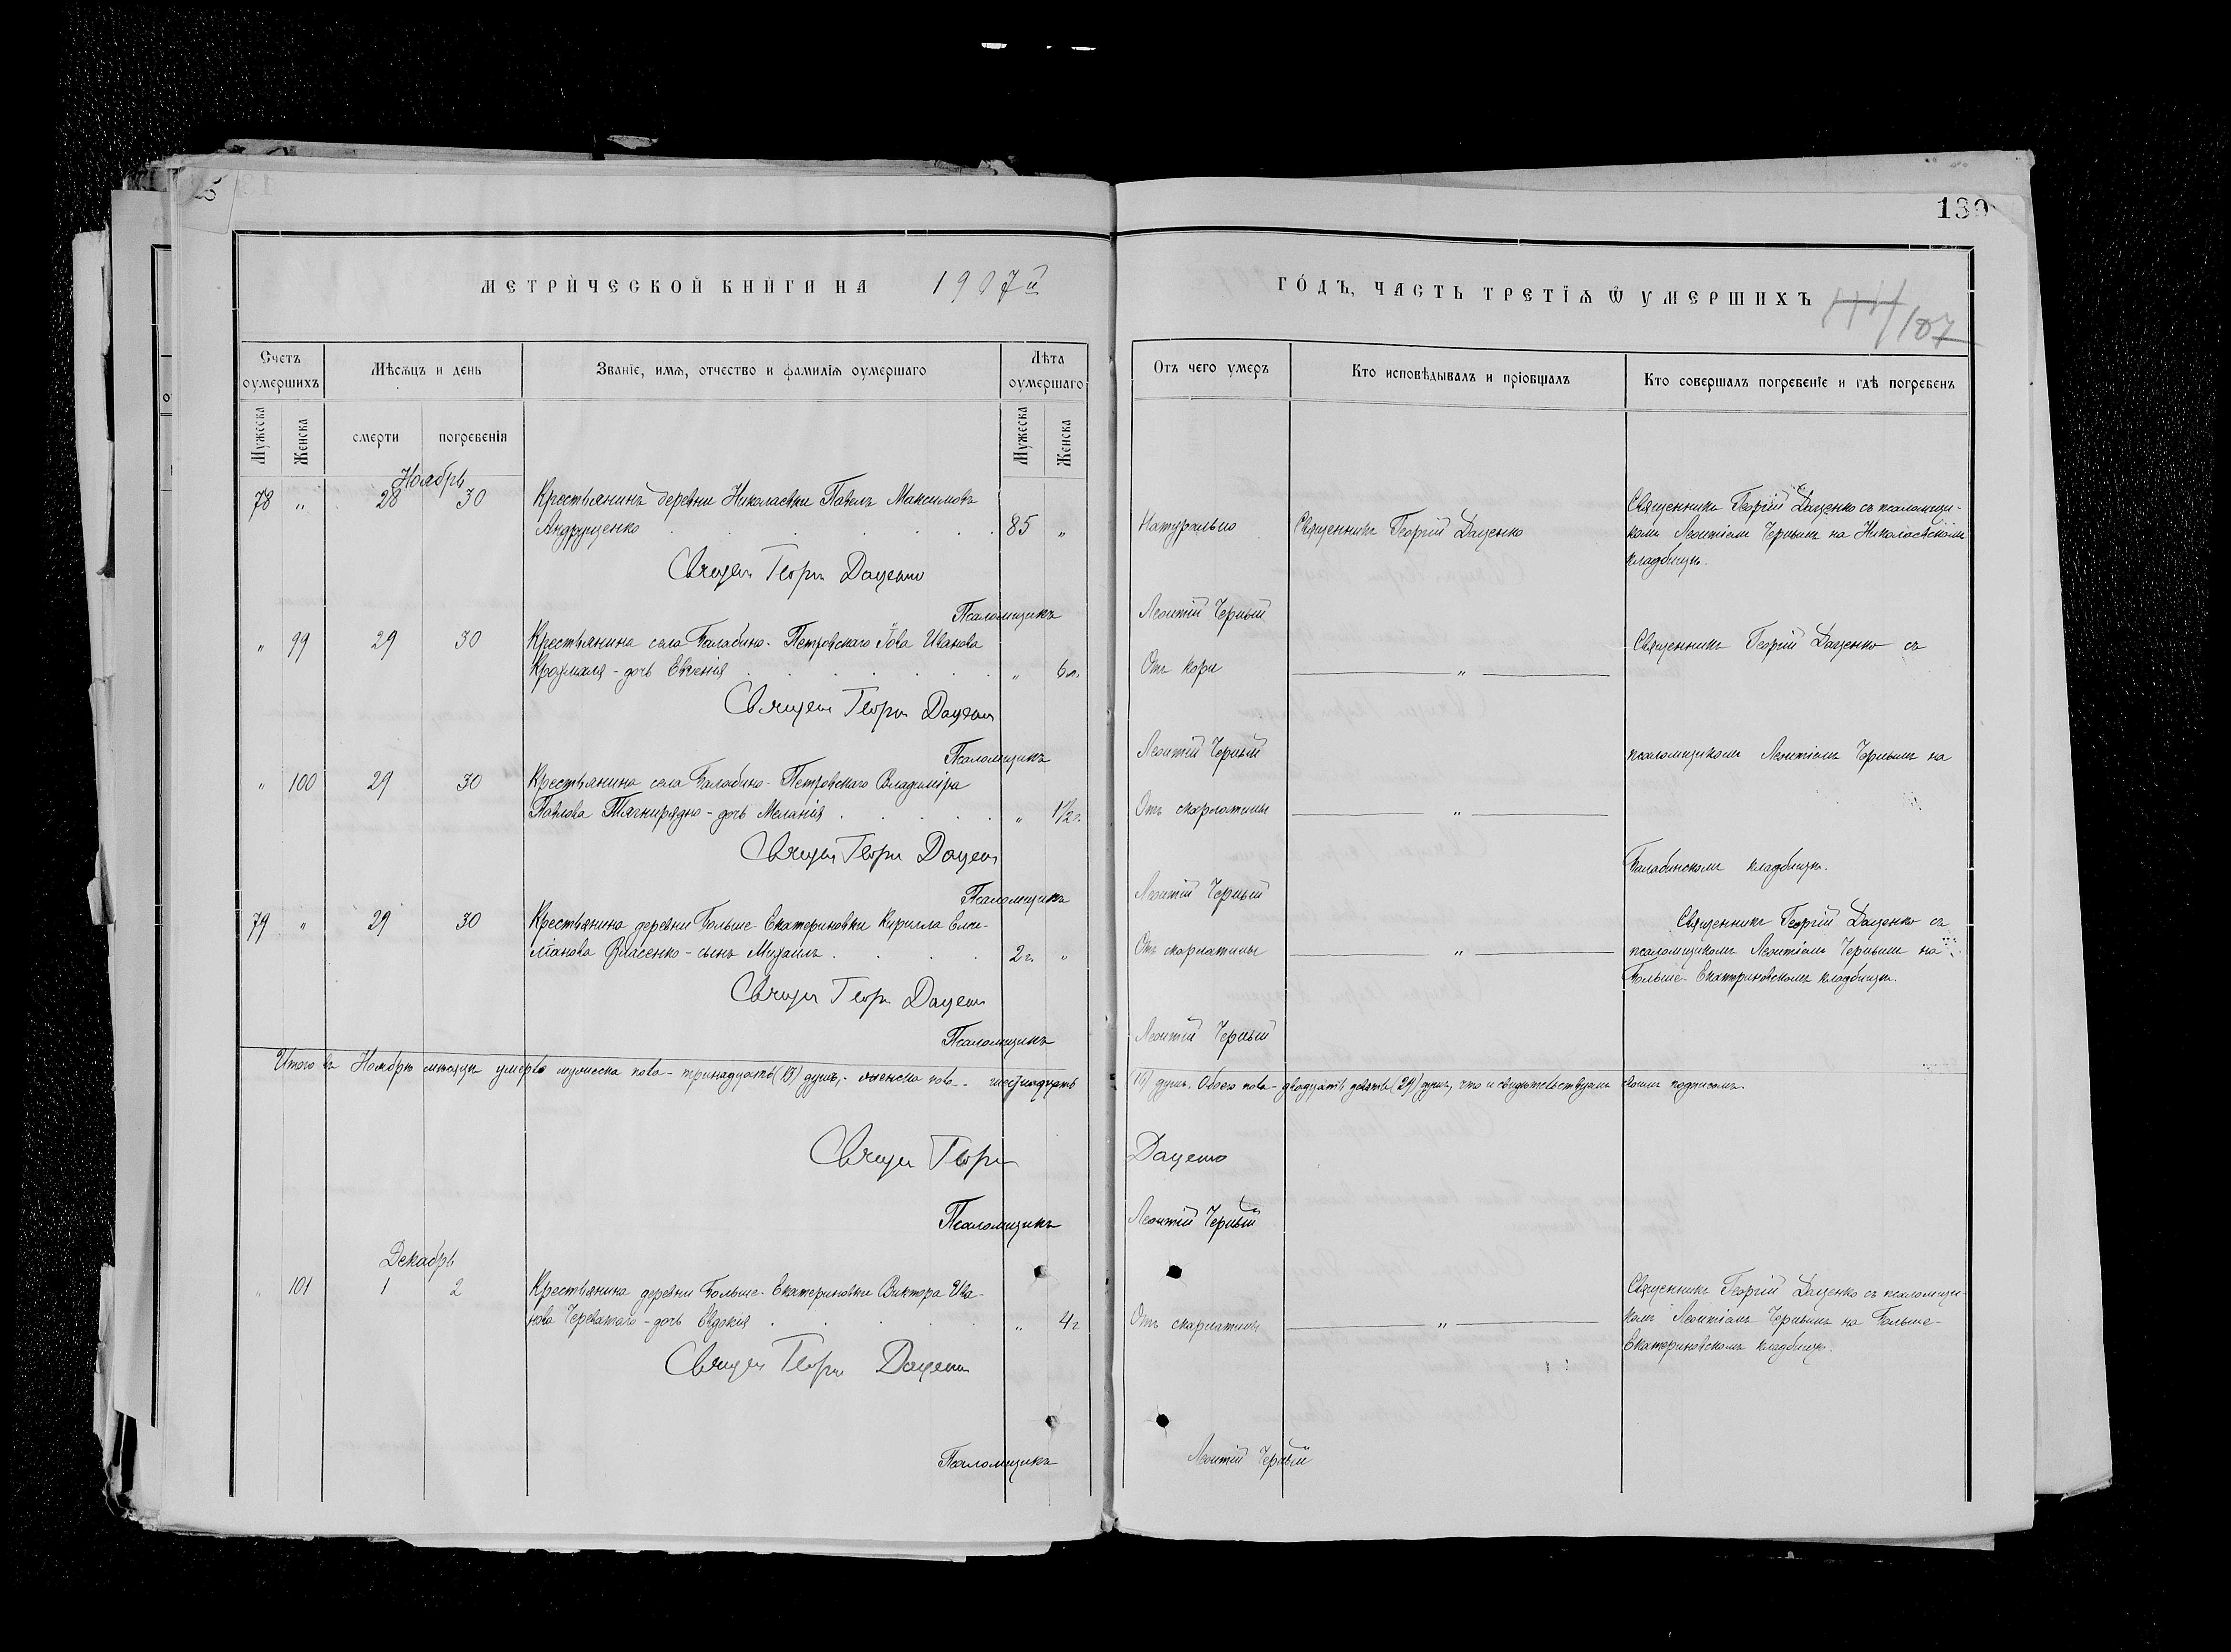 130
МЕТРИ́ЧЕСКОЙ КНИ́ГИ НА 1907й
ГО́ДЪ, ЧАСТЬ ТРЕТІѦ Ѿ УМЕРШИХЪ
187
Счетъ оумершихъ
Мѣсѧцъ и день
Званіе, имѧ, отчество и фамиліѧ оумершаго
Лѣта оумершаго
Отъ чего умеръ
Кто исповѣдывалъ и пріобщалъ
Кто совершалъ погребеніе и гдѣ погребенъ
Мужеска
Женска
смерти
погребенія
Мужеска
Женска
Ноябрь
78 " 28 30 Крестьянинъ деревни Николаевки Павелъ Максимовъ
Андрущенко 85 " Натурально Священникъ Георгій Даценко
Священникъ Георгій Даценко съ псаломщи-
комъ Леонтіемъ Чернымъ на Николаевскомъ
кладбищѣ.
Священ Георги Даценко
Псаломщикъ Леонтій Черный
" 99 29 30 Крестьянина села Балабино-Петровскаго Іова Иванова
дочь Евгенія " 6 л. Отъ кори "
Священникъ Георгій Даценко съ
Священ Георги Даценко
Псаломщикъ Леонтій Черный
псаломщикомъ Леонтіемъ Чернымъ на
" 100 29 30 Крестьянина села Балабино-Петровскаго Владиміра
Павлова Тягнирядно - дочь Меланія " 1½ г. Отъ скарлатины "
Священ Георги Даценко
Балабинскомъ кладбищѣ.
Псаломщикъ Леонтій Черный
79 " 29 30 Крестьянина деревни Больше-Екатериновки Кирилла Еми-
ліанова Власенко - сынъ Михаилъ 2 г. " Отъ скарлатины "
Священникъ Георгій Даценко съ
псаломщикомъ Леонтіемъ Чернымъ на
Больше-Екатериновскомъ кладбищѣ.
Священ Георги Даценко
Псаломщикъ Леонтій Черный
Итого въ Ноябрѣ мѣсяцѣ умерло мужеска пола - тринадцать (13) душъ, - женска пола - шестнадцать (16) душъ. Обоего пола - двадцать девять (29) душъ, что и свидѣтельствуемъ своимъ подписомъ.
Священ Георги Даценко
Псаломщикъ Леонтій Черный
Декабрь
" 101 1 2 Крестьянина деревни Больше-Екатериновки Виктора Ива-
нова Череватаго - дочь Евдокія " 4 г. Отъ скарлатины "
Священникъ Георгій Даценко съ псаломщи-
комъ Леонтіемъ Чернымъ на Больше-
Екатериновскомъ кладбищѣ.
Священ Георги Даценко
Псаломщикъ Леонтій Черный